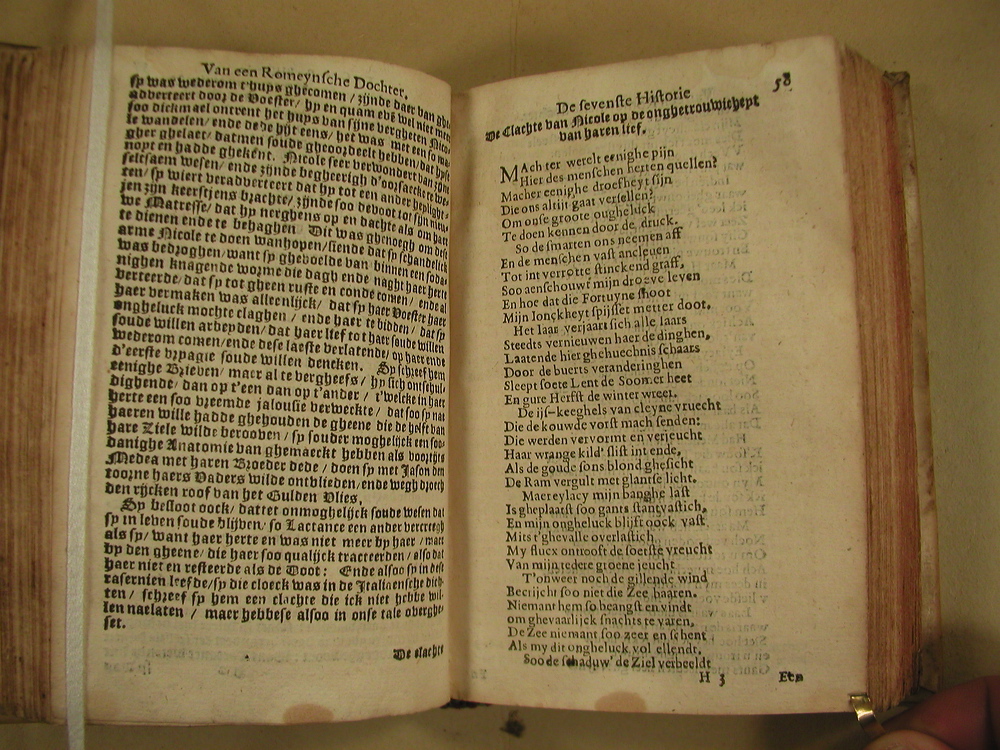 Van een Romeynsche Dochter.
sy was wederom t'huys ghecomen / zijnde daer van ghe-
adverteert door de Voester / hy en quam eve wel niet meer
soo dickmael ontrent het huys van sijne vergheten Nico-
le wandelen / ende dede hyt eens / het was met een so wa-
gher ghelaet / datmen soude gheoordeelt hebben / dat hyse
noyt en hadde ghekent. Nicole seer verwondert van zijn
seltsaem wesen / ende zijnde begheerigh d'oorsaecke te we-
ten / sy wiert veradverteert dat hy tot een ander heylighe-
jen zijn keerstjens brachte / zijnde soo devoot tot sijn nieu-
we Matresse / dat hy nerghens op en dachte als om haer
te dienen ende te behaghen Dit was ghenoegh om dese
arme Nicole te doen wanhopen / siende dat sy schandelick
was bedroghen / want sy ghevoelde van binnen een soda-
nighen knagende worme die dagh ende naght haer herte
verteerde / dat sy tot gheen ruste en conde comen / ende al
haer vermaken was alleenlijck / dat sy haer Voester haer
ongheluck mochte claghen / ende haer te bidden / dat sy
soude willen arbeyden / dat haer lief tot haer soude willen
wederom comen / ende dese laeste verlatende / op haer ende
d'eerste vryagie soude willen dencken. Sy schreef hem
eenighe Brieven / maer al te vergheefs / hy sich ontschul-
dighende / dan op t'een dan op t'ander / t'welcke in haer
herte een soo vreemde jalousie verweckte / dat soo sy niet
haeren wille hadde ghehouden de gheene die de helft van
hare Ziele wilde berooven / sy souder moghelijck een soo-
danighe Anatomie van ghemaeckt hebben als voortijts
Medea met haren Broeder dede / doen sy met Jason den
toorne haers Vaders wilde ontvlieden / ende wegh droegh
den rijcken roof van het Gulden Vlies.
Sy besloot oock / dattet onmoghelijck soude wesen dat
sy in leven soude blijven / so Lactance een ander vercreegh
als sy / want haer herte en was niet meer by haer / maer
by den gheene / die haer soo qualijck tracteerden / also dat
haer niet en resteerde als de Doot: Ende alsoo sy in dese
rasernien leefde / sy die cloeck was in de Italiaensche dich-
ten / schreef sy hem een clachte die ick niet hebbe wil-
len naelaten / maer hebbese alsoo in onse tale overghe-
set.
De clachte
58
De sevenste Historie
De Clachte van Nicole op de onghetrouwicheyt
van haren lief.
MAch ter werelt eenighe pijn
Hier des menschen herten quellen?
Macher eenighe droefheyt sijn
Die ons altijt gaat versellen?
Om onse groote ongheluck
Te doen kennen door de druck.
So de smarten ons neemen aff
En de menschen vast ancleven
Tot int verrotte stinckend graff,
Soo aenschouwt mijn droeve leven
En hoe dat die Fortuyne shoot
Mijn Jonckheyt spijsset metter doot.
Het laar verjaart sich alle laars
Steedts vernieuwen haer de dinghen,
Laatende hier ghehuechnis schaars
Door de buerts veranderinghen
Sleept soete Lent de Soomer heet
En gure Herfst de winter wreet.
De ijs-keeghels van cleyne vruecht
Die de kouwde vorst mach senden:
Die werden vervormt en verjeucht
Haar wrange kild' slist int ende,
Als de goude sons blond ghesicht
De Ram vergult met glantse licht.
Maer eylacy mijn banghe last
Is gheplaatst soo gants stantvastich,
En mijn ongheluck blijft oock vast
Mits t'ghevalle overlastich
My flucx ontrooft de soetste vreucht
Van mijn tedere groene jeucht
T'onweer noch de gillende wind
Beetijcht soo niet die Zee baaren.
Niemant hem so beangst en vindt
om ghevaarlijck snachts te varen,
De Zee niemant soo zeer en schent
Als my dit ongheluck vol ellendt.
Soo de schaduw' de Ziel verbeeldt
H 3
En